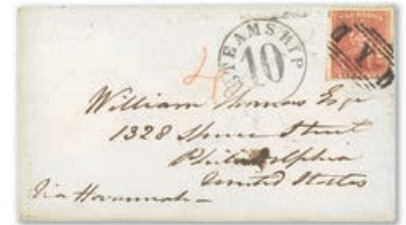 STEAMSHIP
10
4
William Thomas Esqr
1328 Spruce Street
Philadelphia
United States
Via Havannah